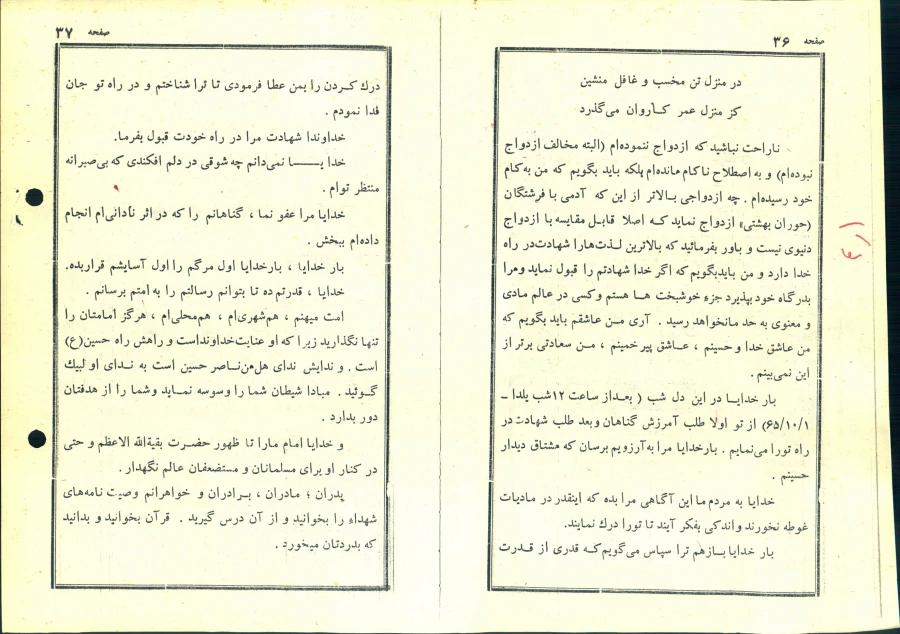 صفحه ۳۶
در منزل تن مخسب و غافل منشین
کز منزل عمر کاروان می‌گذرد
ناراحت نباشید که ازدواج ننموده‌ام (البته مخالف ازدواج
نبوده‌ام) و به اصطلاح ناکام مانده‌ام بلکه باید بگویم که من به کام
خود رسیده‌ام . چه ازدواجی بالاتر از این که آدمی با فرشتگان
(حوران بهشتی) ازدواج نماید که اصلا قابل مقایسه با ازدواج
دنیوی نیست و باور بفرمائید که بالاترین لذت‌ها را شهادت در راه
خدا دارد و من باید بگویم که اگر خدا شهادتم را قبول نماید و مرا
بدرگاه خود بپذیرد جزء خوشبخت ها هستم و کسی در عالم مادی
و معنوی به حد ما نخواهد رسید . آری من عاشقم باید بگویم که
من عاشق خدا و حسینم ، عاشق پیر خمینم ، من سعادتی برتر از
این نمی‌بینم .
بار خدایا در این دل شب ( بعد از ساعت ۱۲ شب یلدا ـ
۶۵/۱۰/۱) از تو اولا طلب آمرزش گناهان و بعد طلب شهادت در
راه تو را می‌نمایم . بارخدایا مرا به آرزویم برسان که مشتاق دیدار
حسینم .
خدایا به مردم ما این آگاهی مرا بده که اینقدر در مادیات
غوطه نخورند و اندکی بفکر آیند تا تو را درك نمایند.
بار خدایا بازهم ترا سپاس می‌گویم که قدری از قدرت
۱ر۶
صفحه ۳۷
درك کردن را بمن عطا فرمودی تا ترا شناختم و در راه تو جان
فدا نمودم .
خداوندا شهادت مرا در راه خودت قبول بفرما.
خدا یا نمی‌دانم چه شوقی در دلم افکندی که بی‌صبرانه
منتظر توام .
خدایا مرا عفو نما ، گناهانم را که در اثر نادانی‌ام انجام
داده‌ام ببخش .
بار خدایا ، بارخدایا اول مرگم را اول آسایشم قرار بده.
خدایا ، قدرتم ده تا بتوانم رسالتم را به امتم برسانم .
امت میهنم ، هم‌شهری‌ام ، هم‌محلی‌ام ، هرگز امامتان را
تنها نگذارید زیرا که او عنایت خداوند است و راهش راه حسین(ع)
است . و ندایش ندای هل‌من‌ناصر حسین است به ندای او لبیك
گوئید . مبادا شیطان شما را وسوسه نماید و شما را از هدفتان
دور بدارد .
و خدایا امام ما را تا ظهور حضرت بقیةالله الاعظم و حتی
در کنار او برای مسلمانان و مستضعفان عالم نگهدار .
پدران ؛ مادران ، برادران و خواهرانم وصیت نامه‌های
شهداء را بخوانید و از آن درس گیرید . قرآن بخوانید و بدانید
که بدردتان میخورد .